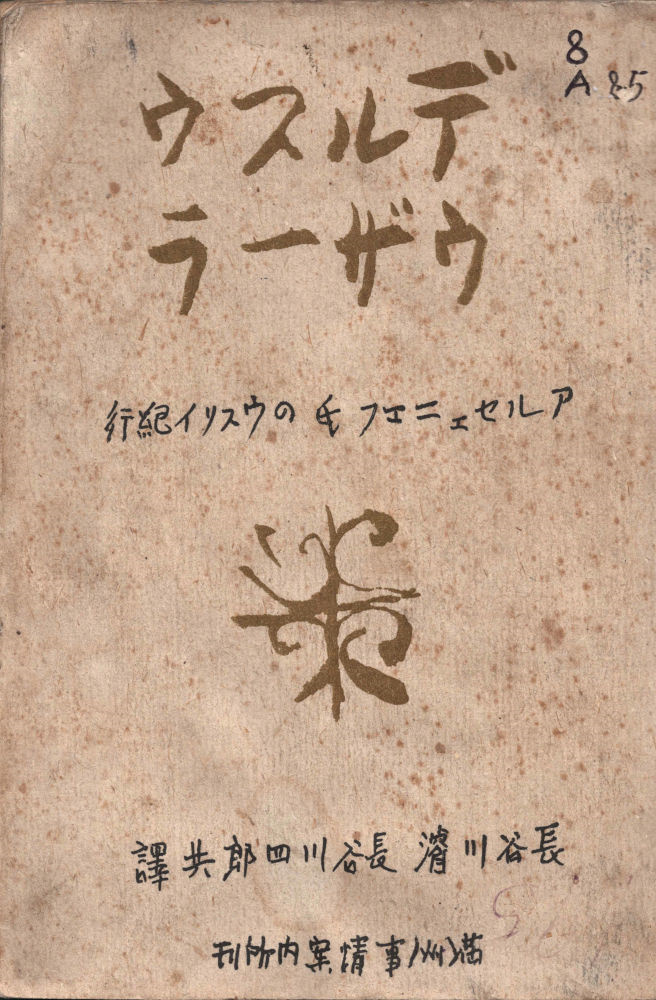 8
A 85
デルスウ
ウザーラ
アルセェニエフ氏のウスリイ紀行
長谷川濬 長谷川四郎共譯
滿洲事情案内所刊